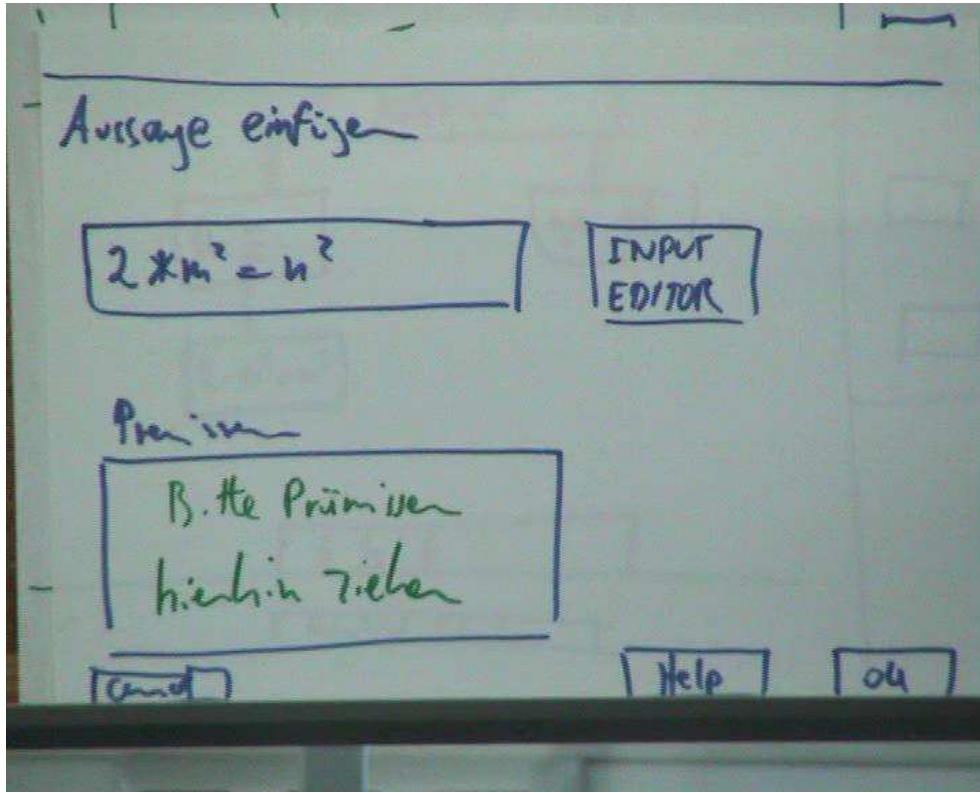 Aussage einfügen
2 * m² = n²
INPUT
EDITOR
Prämissen
Bitte Prämissen
hierhin ziehen
Cancel
Help
Ok